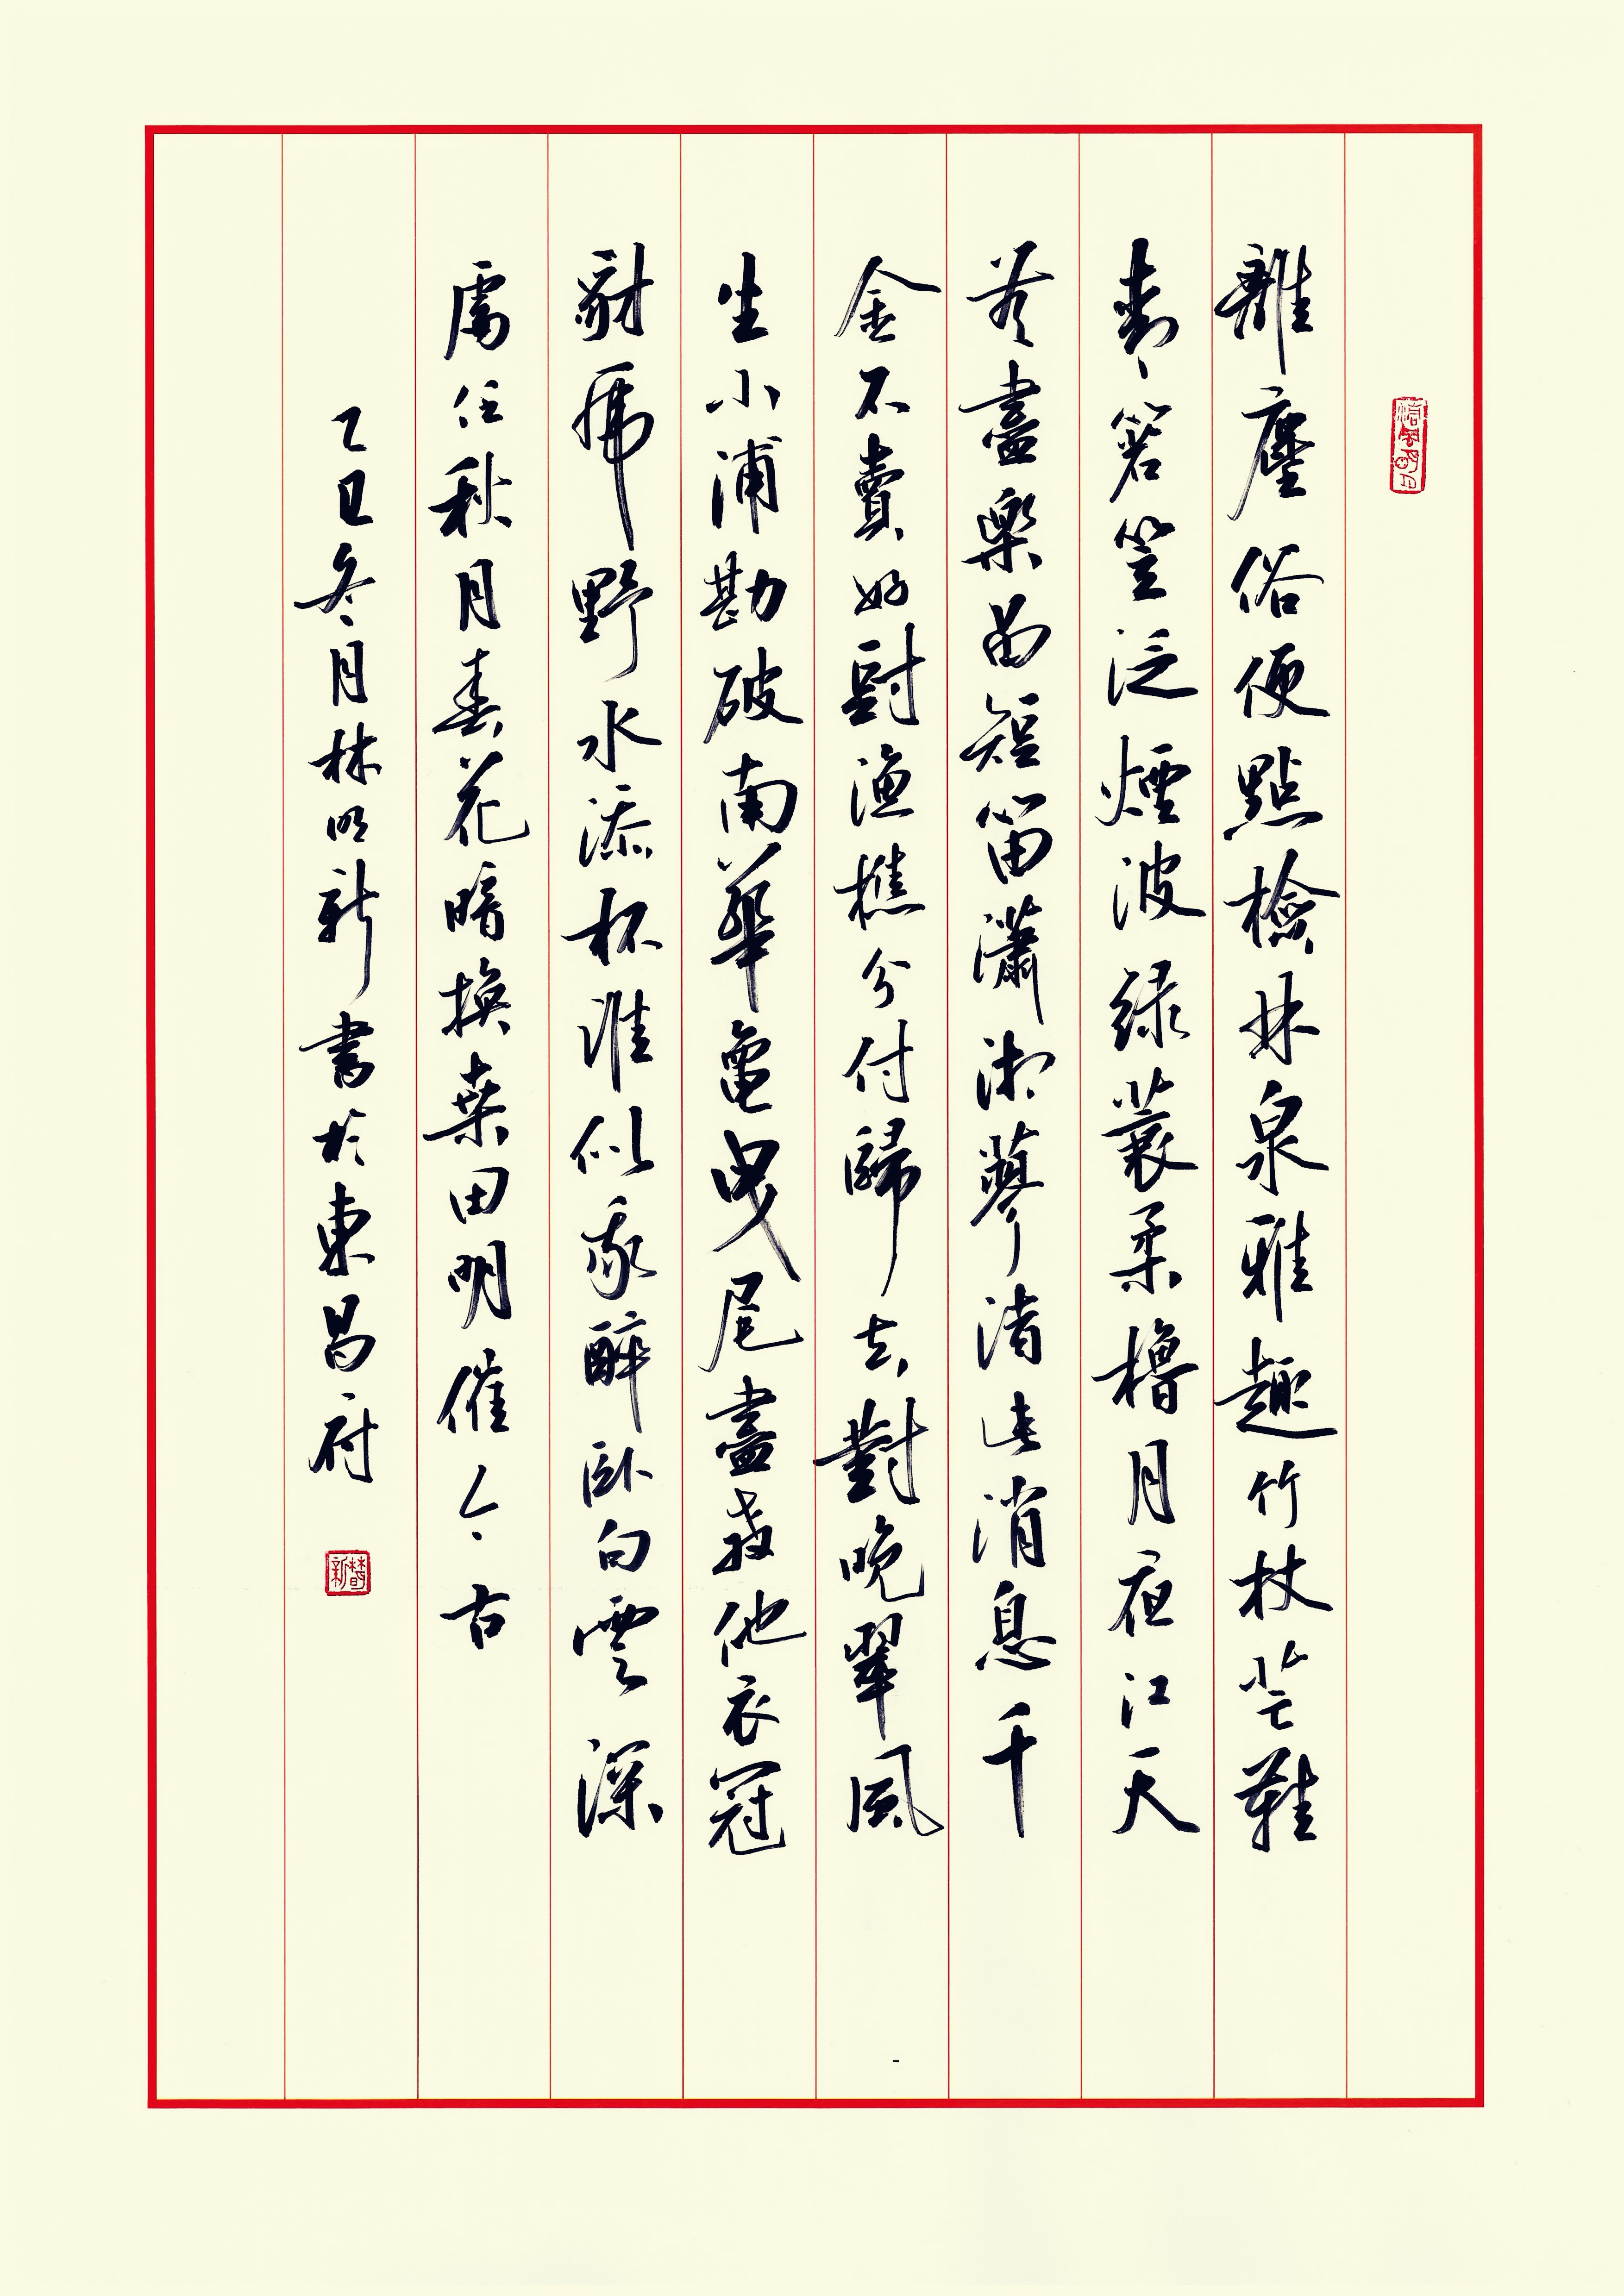 離塵俗便點檢林泉雅趣竹杖芒鞋
箬笠泛煙波綠蓑柔櫓月夜江天
盡樂曲短笛瀟湘蓼渚消息千
金不賣好對漁樵分付歸去對晚翠風
生小浦勘破南華龜曳尾盡教他衣冠
豺虎野水添杯誰似我醉卧白雲深
處任秋月春花暗換桑田明催今古
乙巳冬月林明新書於東昌府